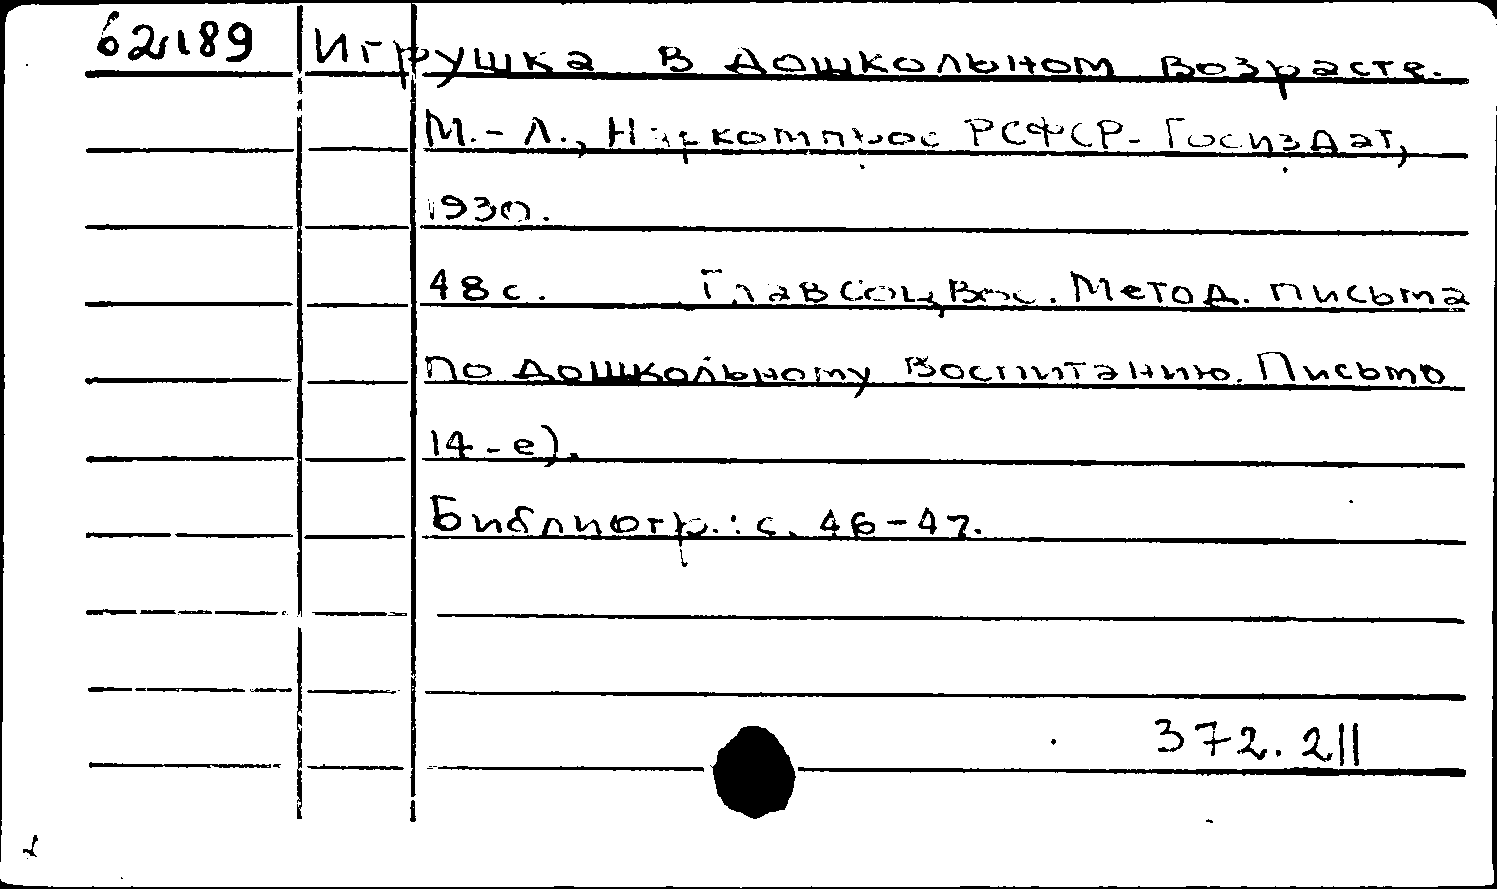 62189 Игрушка в дошкольном возрасте.
М.-Л., Наркомпрос РСФСР-Госиздат,
1930.
48 с. Главсоцвос. Метод. письма
по дошкольному воспитанию. Письмо
14-е).
Библиогр.: с. 46-47.
372.211